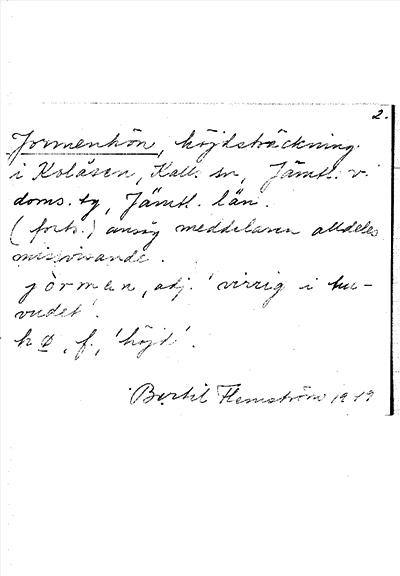 2.
Jormenhön, höjdsträckning
i Kolåsen, Kall. sn, Jämtl. v.
doms. tg, Jämtl. län.
(forts.) ansåg meddelaren alldeles
missvisande.
jörmen, adj. 'virrig i hu-
vudet'.
f., 'höjd'.
Bertil Flemström 1949